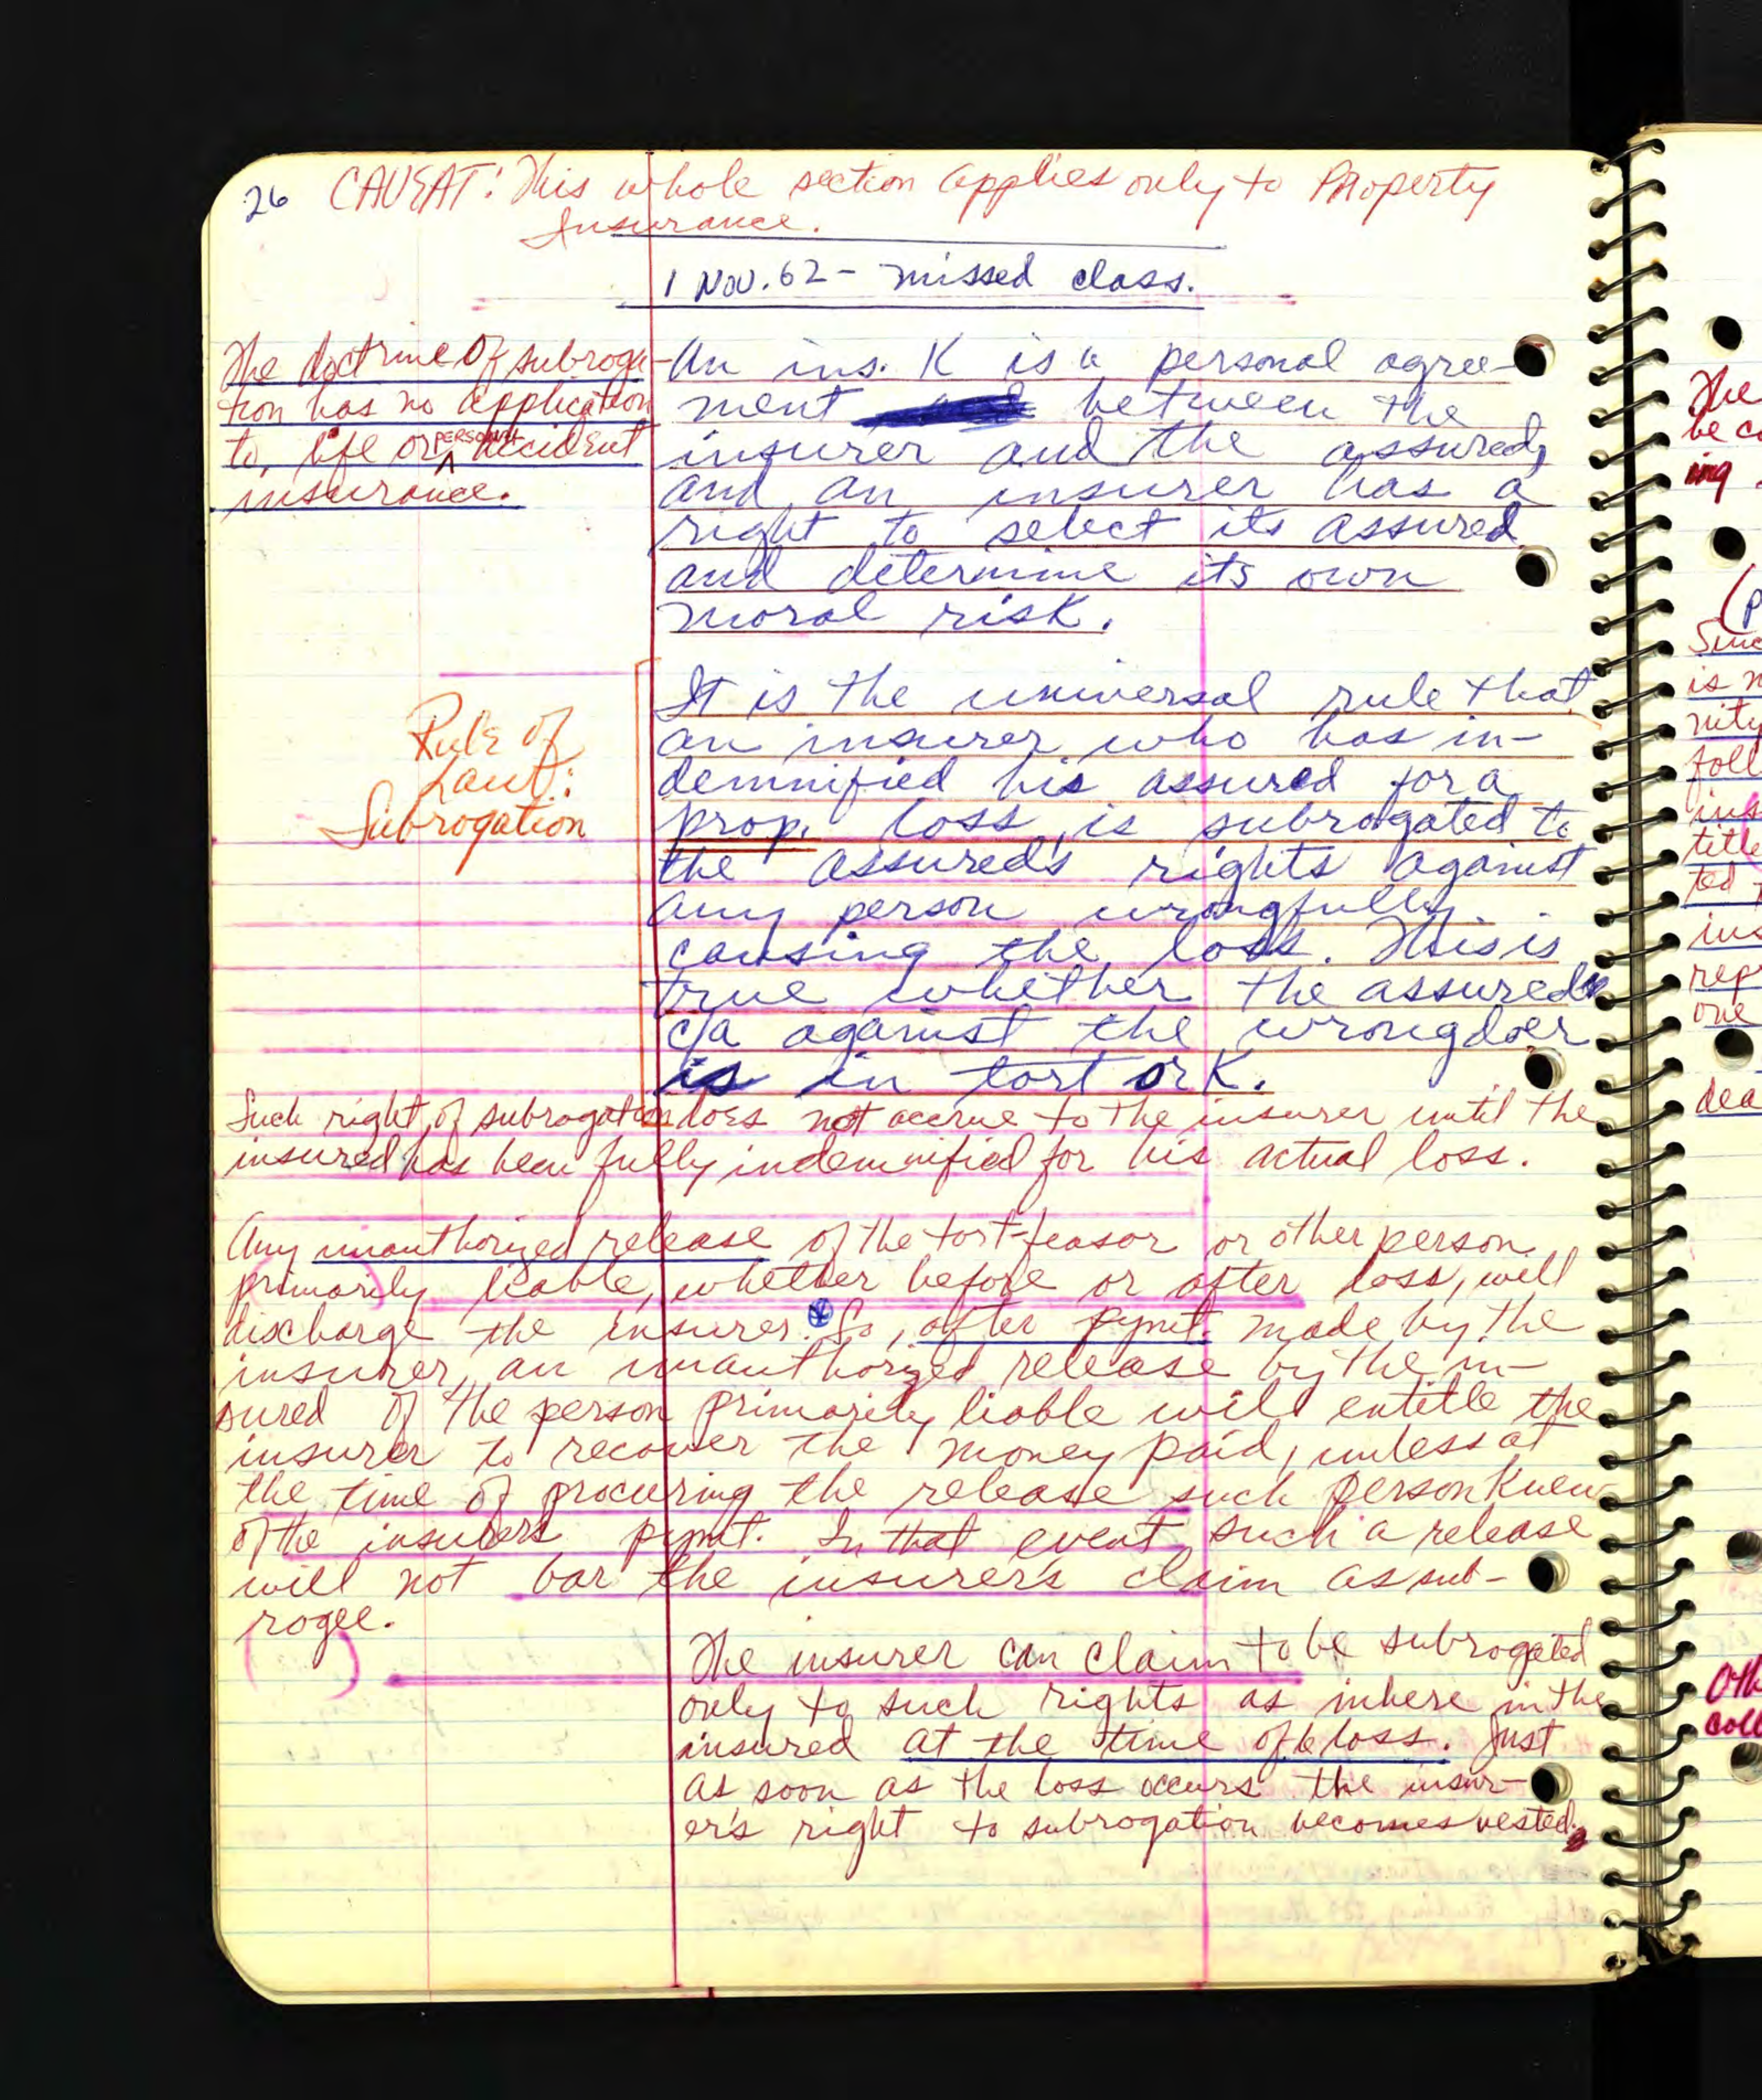 26 CAVEAT: This whole section applies only to Property
Insurance.
1 Nov. 62 - missed class.
The doctrine of subroga-
tion has no application
to life or PERSONAL accident
insurance.
An ins. K is a personal agree-
ment between the
insurer and the assured,
and an insurer has a
right to select its assured
and determine its own
moral risk.
Rule of
Law:
Subrogation
It is the universal rule that
an insurer who has in-
demnified his assured for a
prop. loss, is subrogated to
the assured's rights against
any person wrongfully
causing the loss. This is
true whether the assured's
c/a against the wrongdoer
is in tort or K.
Such right of subrogation does not accrue to the insurer until the
insured has been fully indemnified for his actual loss.
Any unauthorized release of the tort-feasor or other person
primarily liable, whether before or after loss, will
discharge the insurer. So, after pymt. made by the
insurer, an unauthorized release by the in-
sured of the person primarily liable will entitle the
insurer to recover the money paid, unless at
the time of procuring the release such person knew
of the insurers pymt. In that event such a release
will not bar the insurer's claim as sub-
rogee.
The insurer can claim to be subrogated
only to such rights as inhere in the
insured at the time of loss. Just
as soon as the loss occurs the insur-
er's right to subrogation becomes vested.
The
be co
ing
(p
Sinc
is n
nity
foll
ins
title
ted t
ins
repr
one
dea
Oth
coll